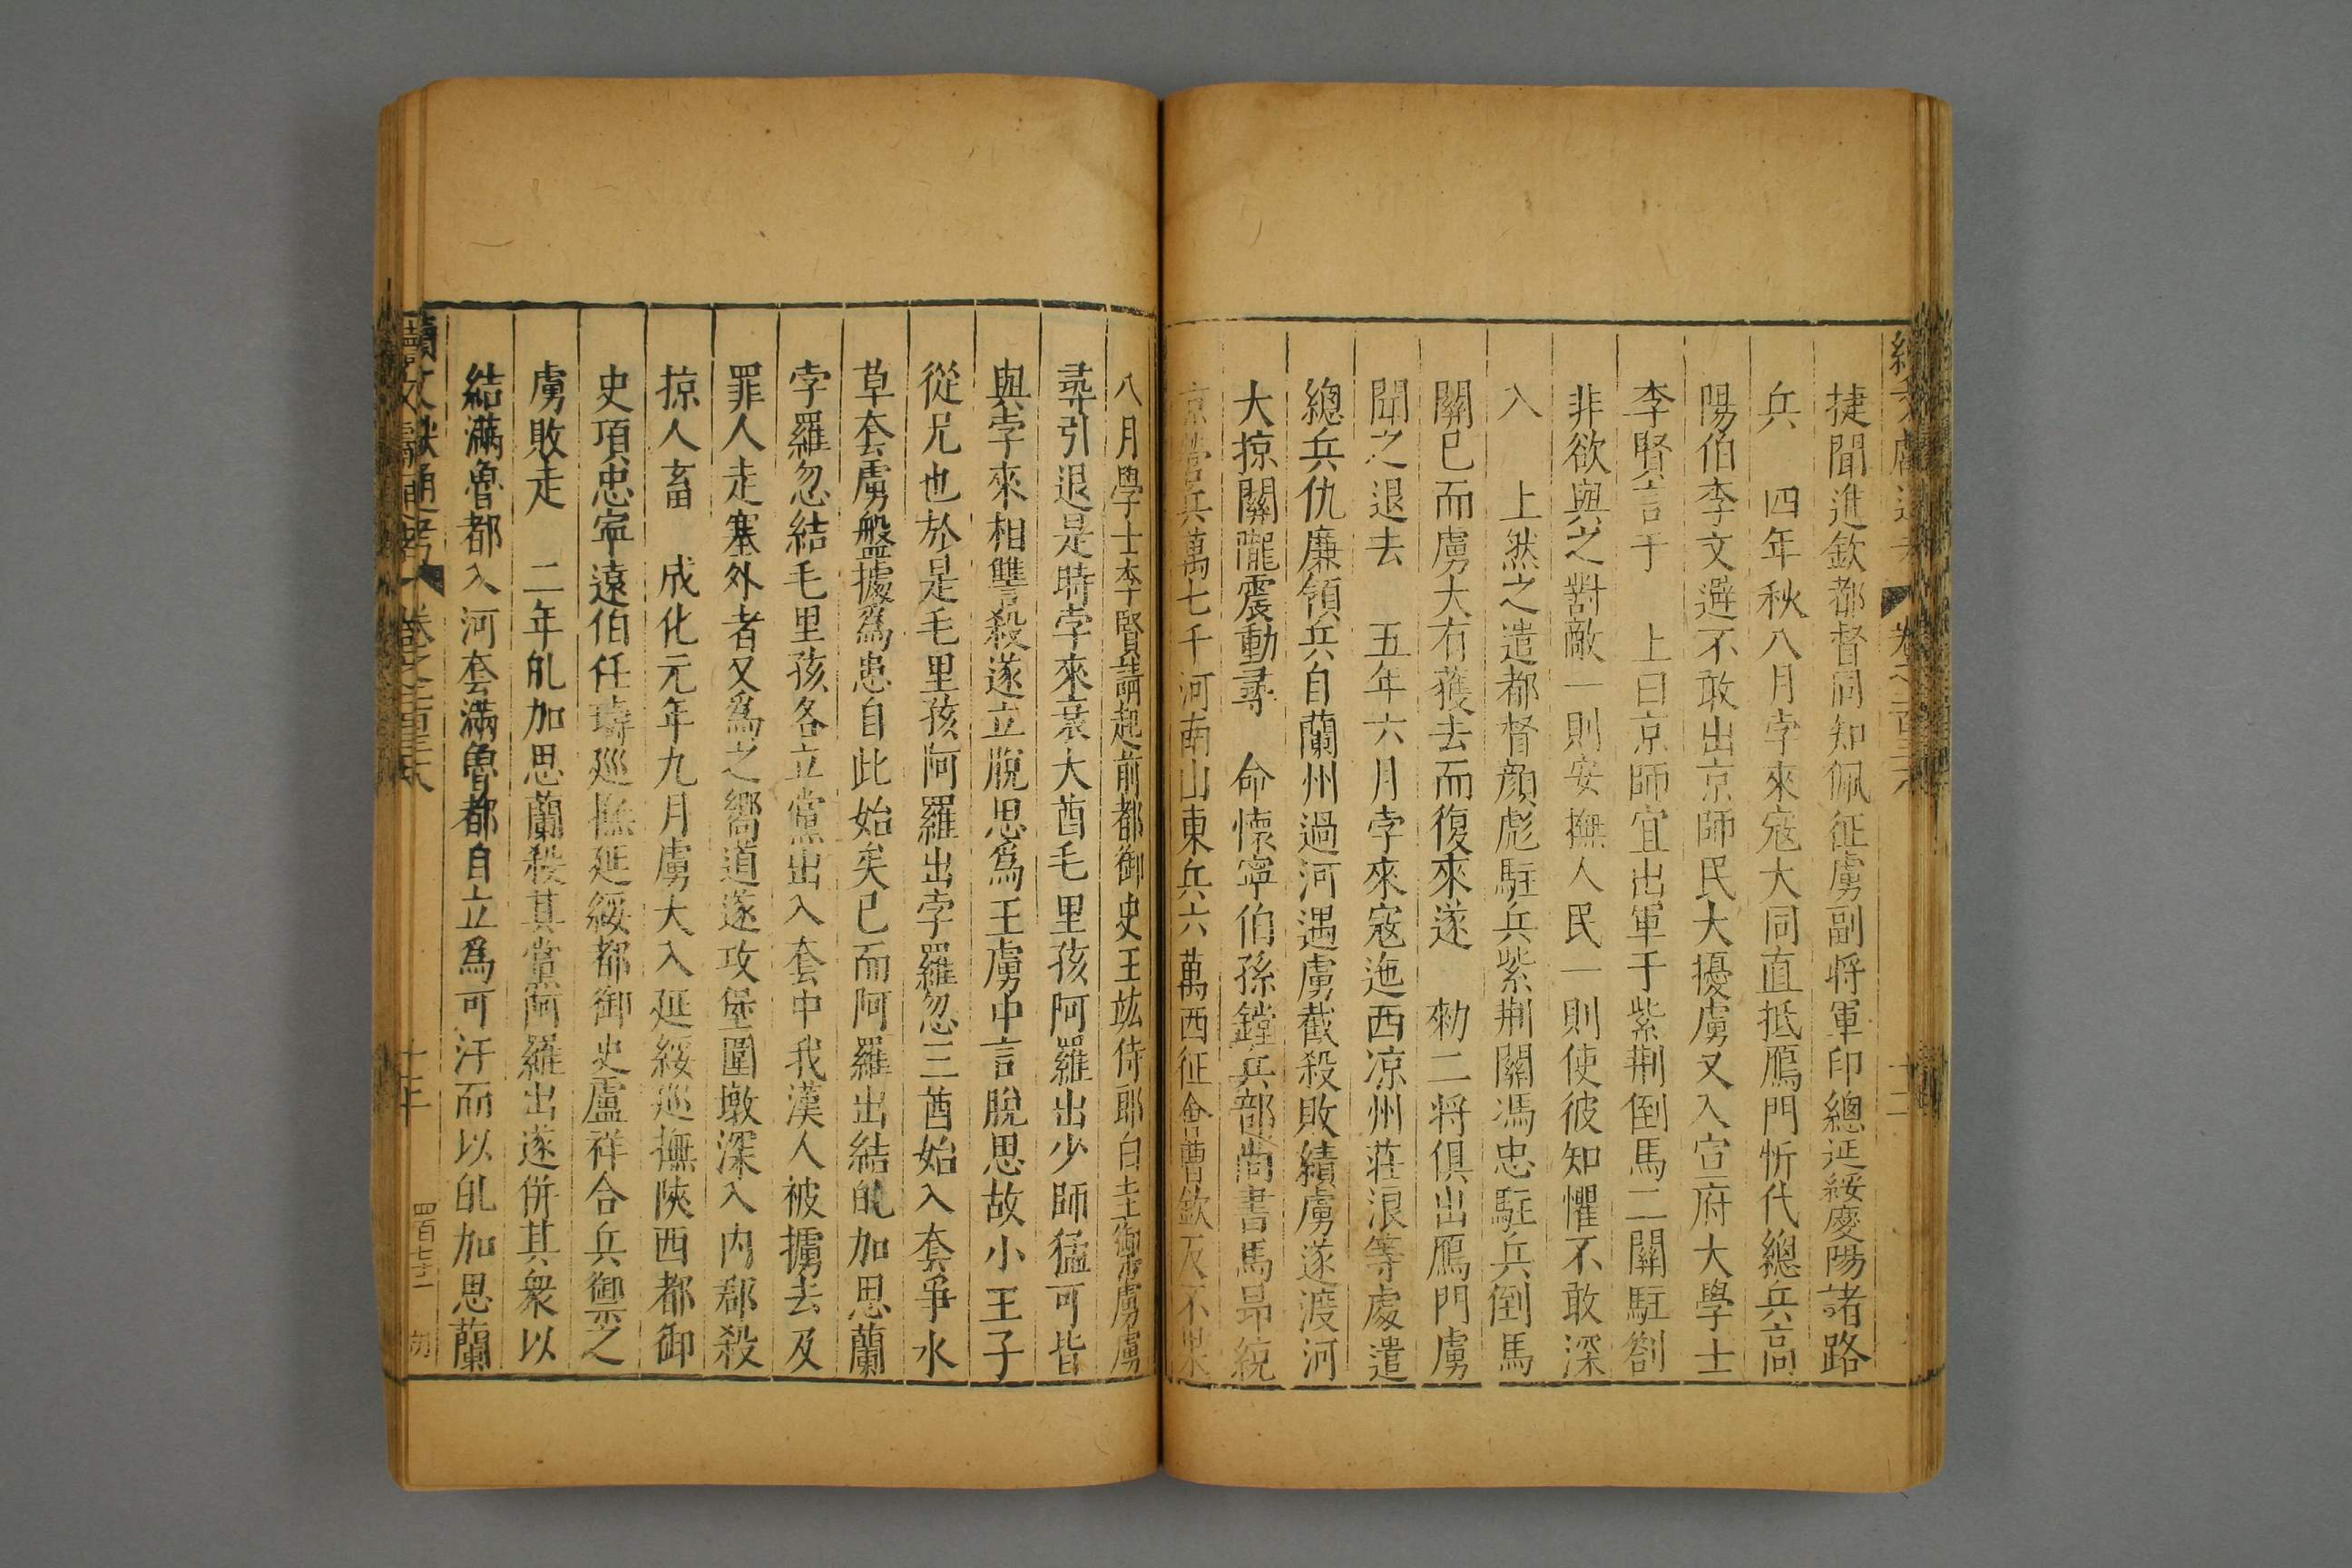 捷聞進欽都督同知佩征虜副將軍印總延綏慶陽諸路
兵　四年秋八月孛來寇大同直抵鴈門忻代總兵高
陽伯李文避不敢出京師民大擾虜又入宣府大學士
李賢言于　上曰京師宜出軍于紫荆倒馬二關駐劄
非欲與之對敵一則安撫人民一則使彼知懼不敢深
入　上然之遣都督顏彪駐兵紫荆關馮忠駐兵倒馬
關已而虜大有獲去而復來遂　勑二將俱出鴈門虜
聞之退去　五年六月孛來寇迤西凉州莊浪等處遣
總兵仇廉領兵自蘭州過河遇虜截殺敗績虜遂渡河
大掠關隴震動尋　命懷寧伯孫鏜兵部尚書馬昻統
京營兵萬七千河南山東兵六萬西征會曹欽反不果
八月學士李賢請起前都御史王竑侍郎白圭禦虜虜
尋引退是時孛來衰大酋毛里孩阿羅出少師猛可皆
與孛來相讐殺遂立脫思爲王虜中言脫思故小王子
從兄也於是毛里孩阿羅出孛羅忽三酋始入套爭水
草套虜盤據爲患自此始矣已而阿羅出結癿加思蘭
孛羅忽結毛里孩各立黨出入套中我漢人被擄去及
罪人走塞外者又爲之嚮道遂攻堡圍墩深入内郡殺
掠人畜　成化元年九月虜大入延綏巡撫陝西都御
史項忠寧遠伯任壽巡撫延綏都御史盧祥合兵禦之
虜敗走　二年癿加思蘭殺其黨阿羅出遂併其衆以
結滿魯都入河套滿魯都自立爲可汗而以癿加思蘭